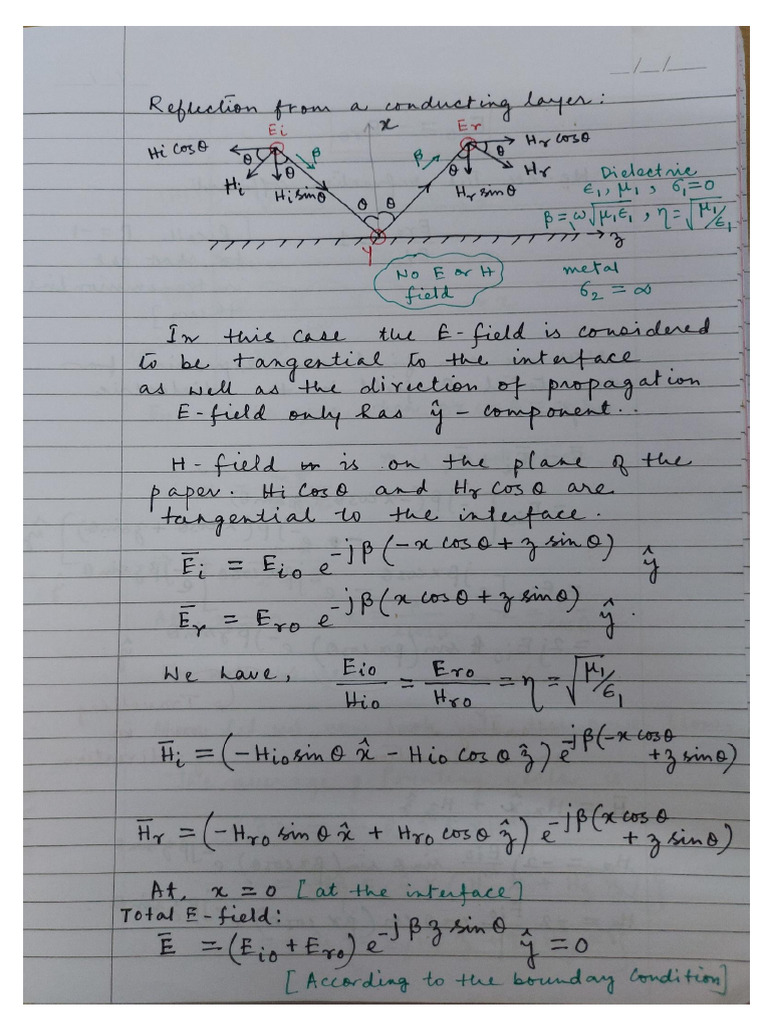 _/_/_
Reflection from a conducting layer:
Ei x Er
Hi cosθ θ β β θ Hr cosθ
Hi θ Hi sinθ θ θ θ Hr sinθ Hr
Dielectric
ε₁, μ₁, σ₁=0
β=ω√μ₁ε₁, η=√μ₁/ε₁
y z
No E or H
field
metal
σ₂ = ∞
In this case the E-field is considered
to be tangential to the interface
as well as the direction of propagation
E-field only has ŷ - component..
H-field is on the plane of the
paper. Hi cosθ and Hr cosθ are
tangential to the interface.
E̅i = Eio e^-jβ(-x cosθ + z sinθ) ŷ
E̅r = Ero e^-jβ(x cosθ + z sinθ) ŷ.
We have, Eio/Hio = Ero/Hro = η = √μ₁/ε₁
H̅i = (-Hio sinθ x̂ - Hio cosθ ẑ) e^-jβ(-x cosθ + z sinθ)
H̅r = (-Hro sinθ x̂ + Hro cosθ ẑ) e^-jβ(x cosθ + z sinθ)
At, x = 0 [at the interface]
Total E-field:
E̅ = (Eio + Ero) e^-jβz sinθ ŷ = 0
[According to the boundary condition]